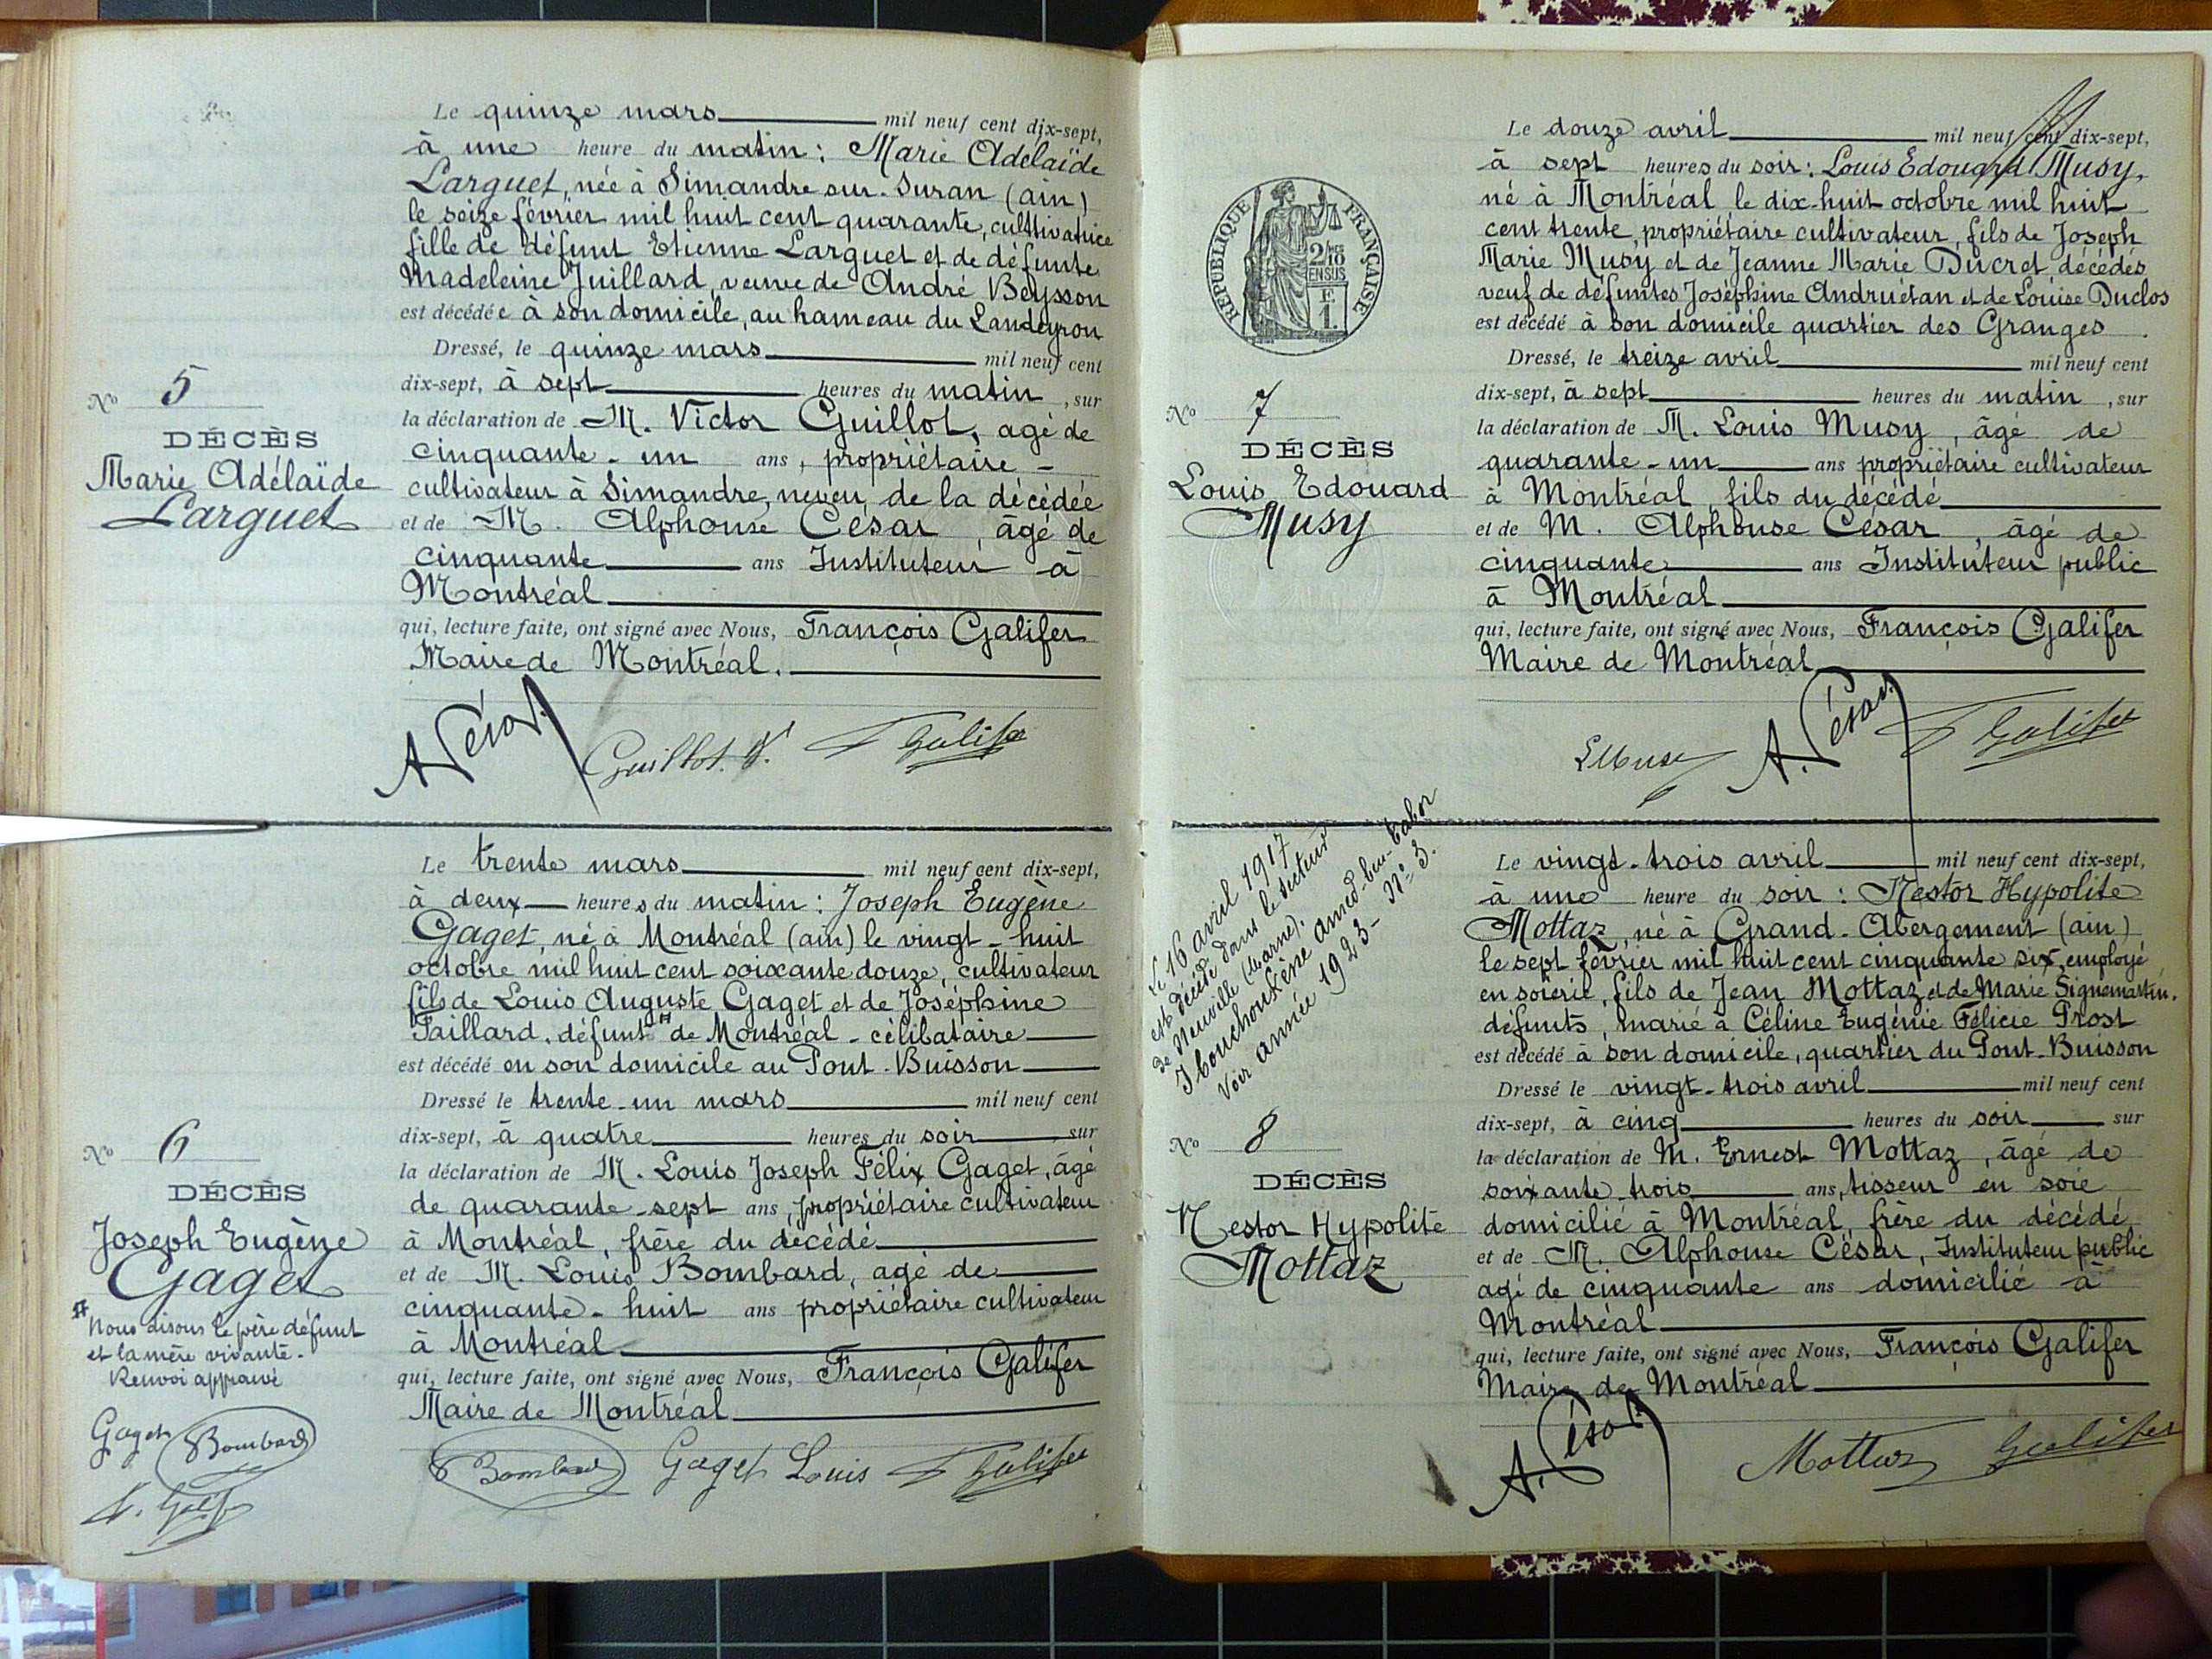 Le quinze mars mil neuf cent dix-sept,
à une heure du matin : Marie Adélaïde
Larguet, née à Simandre sur-Suran (ain)
le seize février mil huit cent quarante, culttivatrice
fille de défunt Etienne Larguet et de défunte
Madeleine Juillard, veuve de André Beysson
est décédée à son domicile, au hameau du Landeyron
Dressé, le quinze mars mil neuf cent
dix-sept, à sept heures du matin, sur
la déclaration de M. Victor Guillot, agé de
cinquante-un ans, propriétaire-
cultivateur à Simandre, neveu de la décédée
et de M. Alphonse César, âgé de
cinquante ans Instituteur à
Montréal
qui, lecture faite, ont signé avec Nous, François Galifer
Maire de Montréal.
A. César Guillot. V. F Galifer
No 5
DÉCÈS
Marie Adélaïde
Larguet
Le trente mars mil neuf cent dix-sept,
à deux heures du matin : Joseph Eugène
Gaget, né à Montréal (ain) le vingt-huit
octobre mil huit cent soixante douze, cultivateur
fils de Louis Auguste Gaget et de Joséphine
Taillard, défunt # de Montréal - célibataire
est décédé en son domicile au Pont-Buisson
Dressé le trente-un mars mil neuf cent
dix-sept, à quatre heures du soir, sur
la déclaration de M. Louis Joseph Félix Gaget, âgé
de quarante-sept ans, propriétaire cultivateur
à Montréal, frère du décédé
et de M. Louis Bombard, agé de
cinquante-huit ans propriétaire cultivateur
à Montréal
qui, lecture faite, ont signé avec Nous, François Galifer
Maire de Montréal
Bombard Gaget Louis F Galifer
No 6
DÉCÈS
Joseph Eugène
Gaget
# Nous disons le père défunt
et la mère vivante.
Renvoi approuvé
Gaget Bombard
F. Galifer
RÉPUBLIQUE FRANÇAISE
2/10
EN SUS
F.
1.
Le douze avril mil neuf cent dix-sept,
à sept heures du soir : Louis Edouard Musy,
né à Montréal le dix-huit octobre mil huit
cent trente, propriétaire cultivateur, fils de Joseph
Marie Musy et de Jeanne Marie Ducret, décédés
veuf de défuntes Joséphine Andruétan et de Louise Duclos
est décédé à son domicile quartier des Granges
Dressé, le treize avril mil neuf cent
dix-sept, à sept heures du matin, sur
la déclaration de M. Louis Musy, âgé de
quarante-un ans propriétaire cultivateur
à Montréal, fils du décédé
et de M. Alphonse César, âgé de
cinquante ans Instituteur public
à Montréal
qui, lecture faite, ont signé avec Nous, François Galifer
Maire de Montréal
L Musy A. César F Galifer
No 7
DÉCÈS
Louis Edouard
Musy
Le 16 avril 1917
est décédé dans le secteur
de Neuville (Marne),
Ibouchoukène Amed-ben-Tabor
Voir année 1923 - No 3.
Le vingt-trois avril mil neuf cent dix-sept,
à une heure du soir : Nestor Hypolite
Mottaz, né à Grand-Abergement (ain)
le sept février mil huit cent cinquante six, employé
en soierie, fils de Jean Mottaz et de Marie Signemartin.
défunts, marié à Céline Eugénie Félicie Prost
est décédé à son domicile, quartier du Pont-Buisson
Dressé le vingt-trois avril mil neuf cent
dix-sept, à cinq heures du soir sur
la déclaration de M. Ernest Mottaz, âgé de
soixante-trois ans, tisseur en soie
domicilié à Montréal, frère du décédé
et de M. Alphonse César, Instituteur public
agé de cinquante ans domicilié à
Montréal
qui, lecture faite, ont signé avec Nous, François Galifer
Maire de Montréal
A. César Mottaz Galifer
No 8
DÉCÈS
Nestor Hypolite
Mottaz